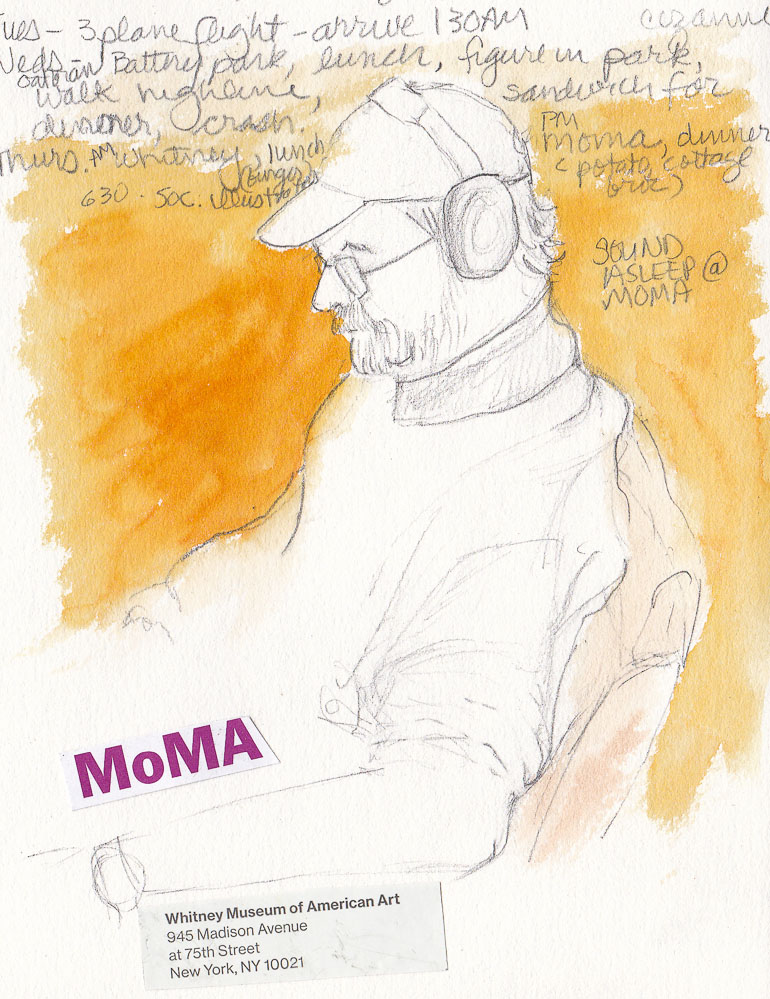 Tues - 3 plane flight - arrive 130AM
Weds - Battery park, lunch, figure in park,
walk highline, sandwich for
dinner, crash.
Thurs. AM Whitney, lunch
(burger)
630 - Soc. illustrators
PM
moma, dinner
(potato, cottage
SOUND
ASLEEP @
MOMA
MoMA
Whitney Museum of American Art
945 Madison Avenue
at 75th Street
New York, NY 10021